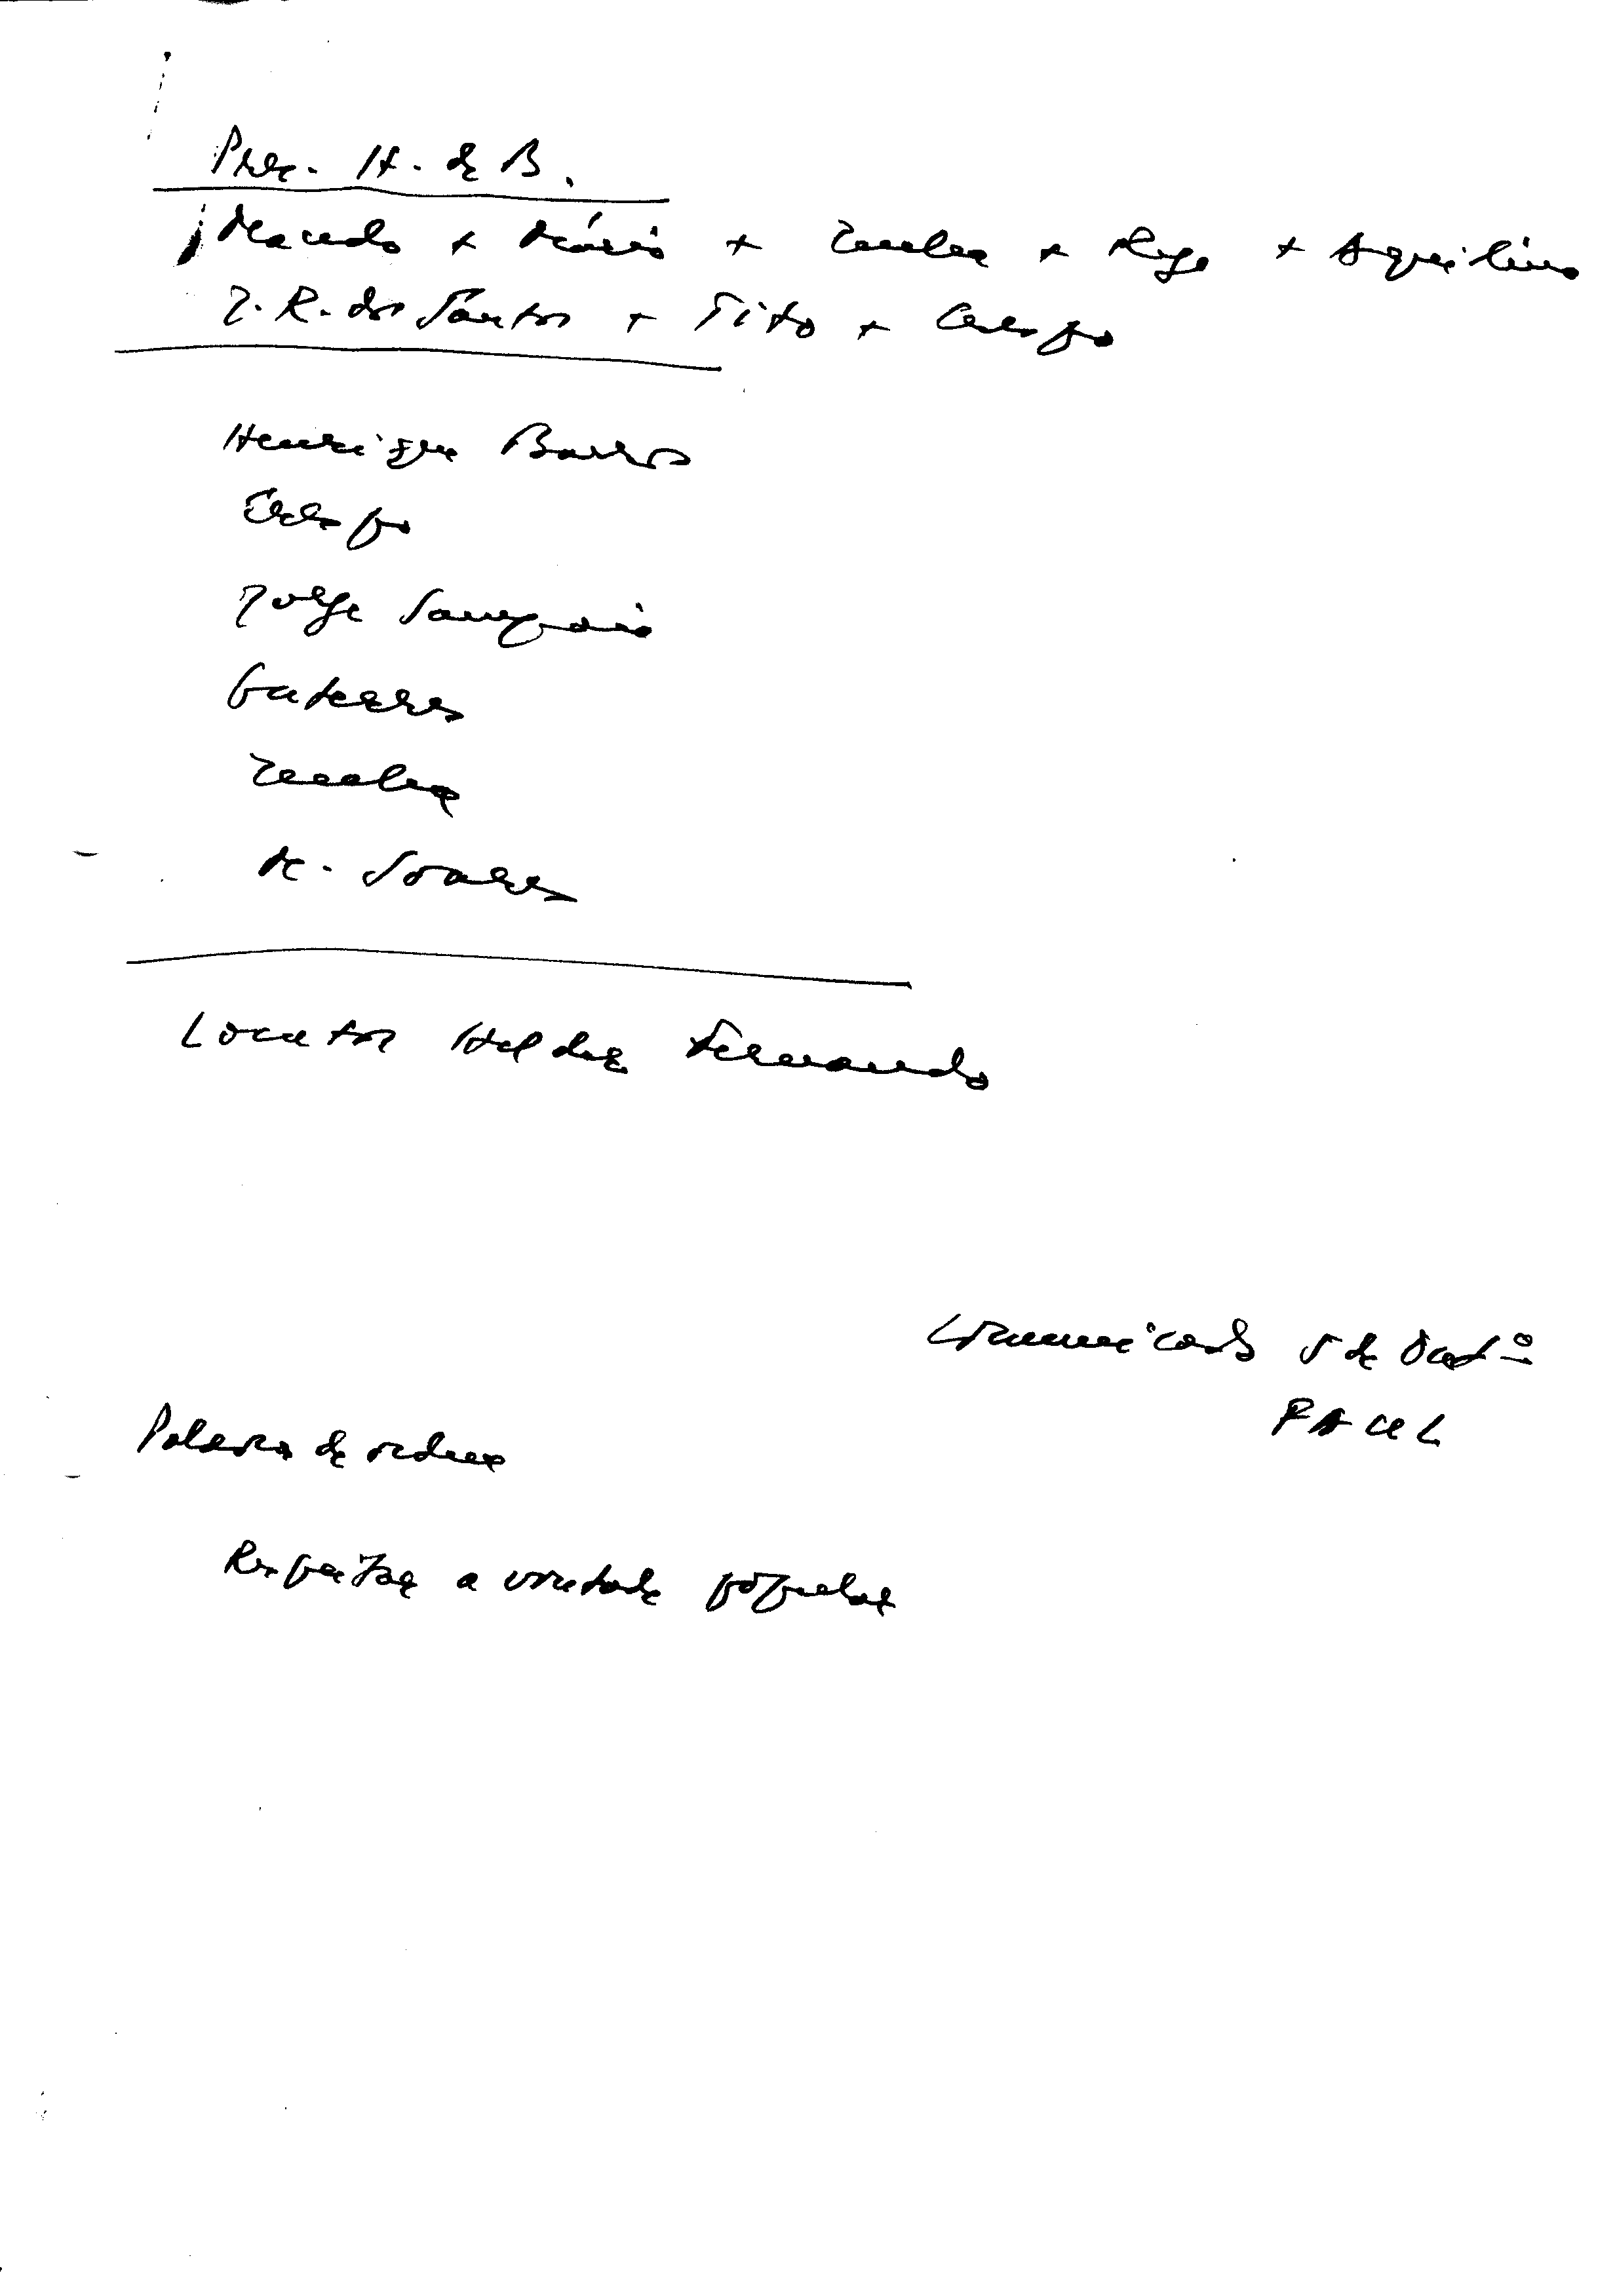 Pres. H. de B.
Macedo + Mário + Zenha + Rego + Aquilino
J. R. dos Santos + Tito + Crespo
Henrique Barros
Crespo
Jorge Sampaio
Guterres
Zenha
M. Soares
Locutor Helder Fernando
Comunicado S de Out.º
FAUL
Palavra de ordem
Respeitar a vontade popular